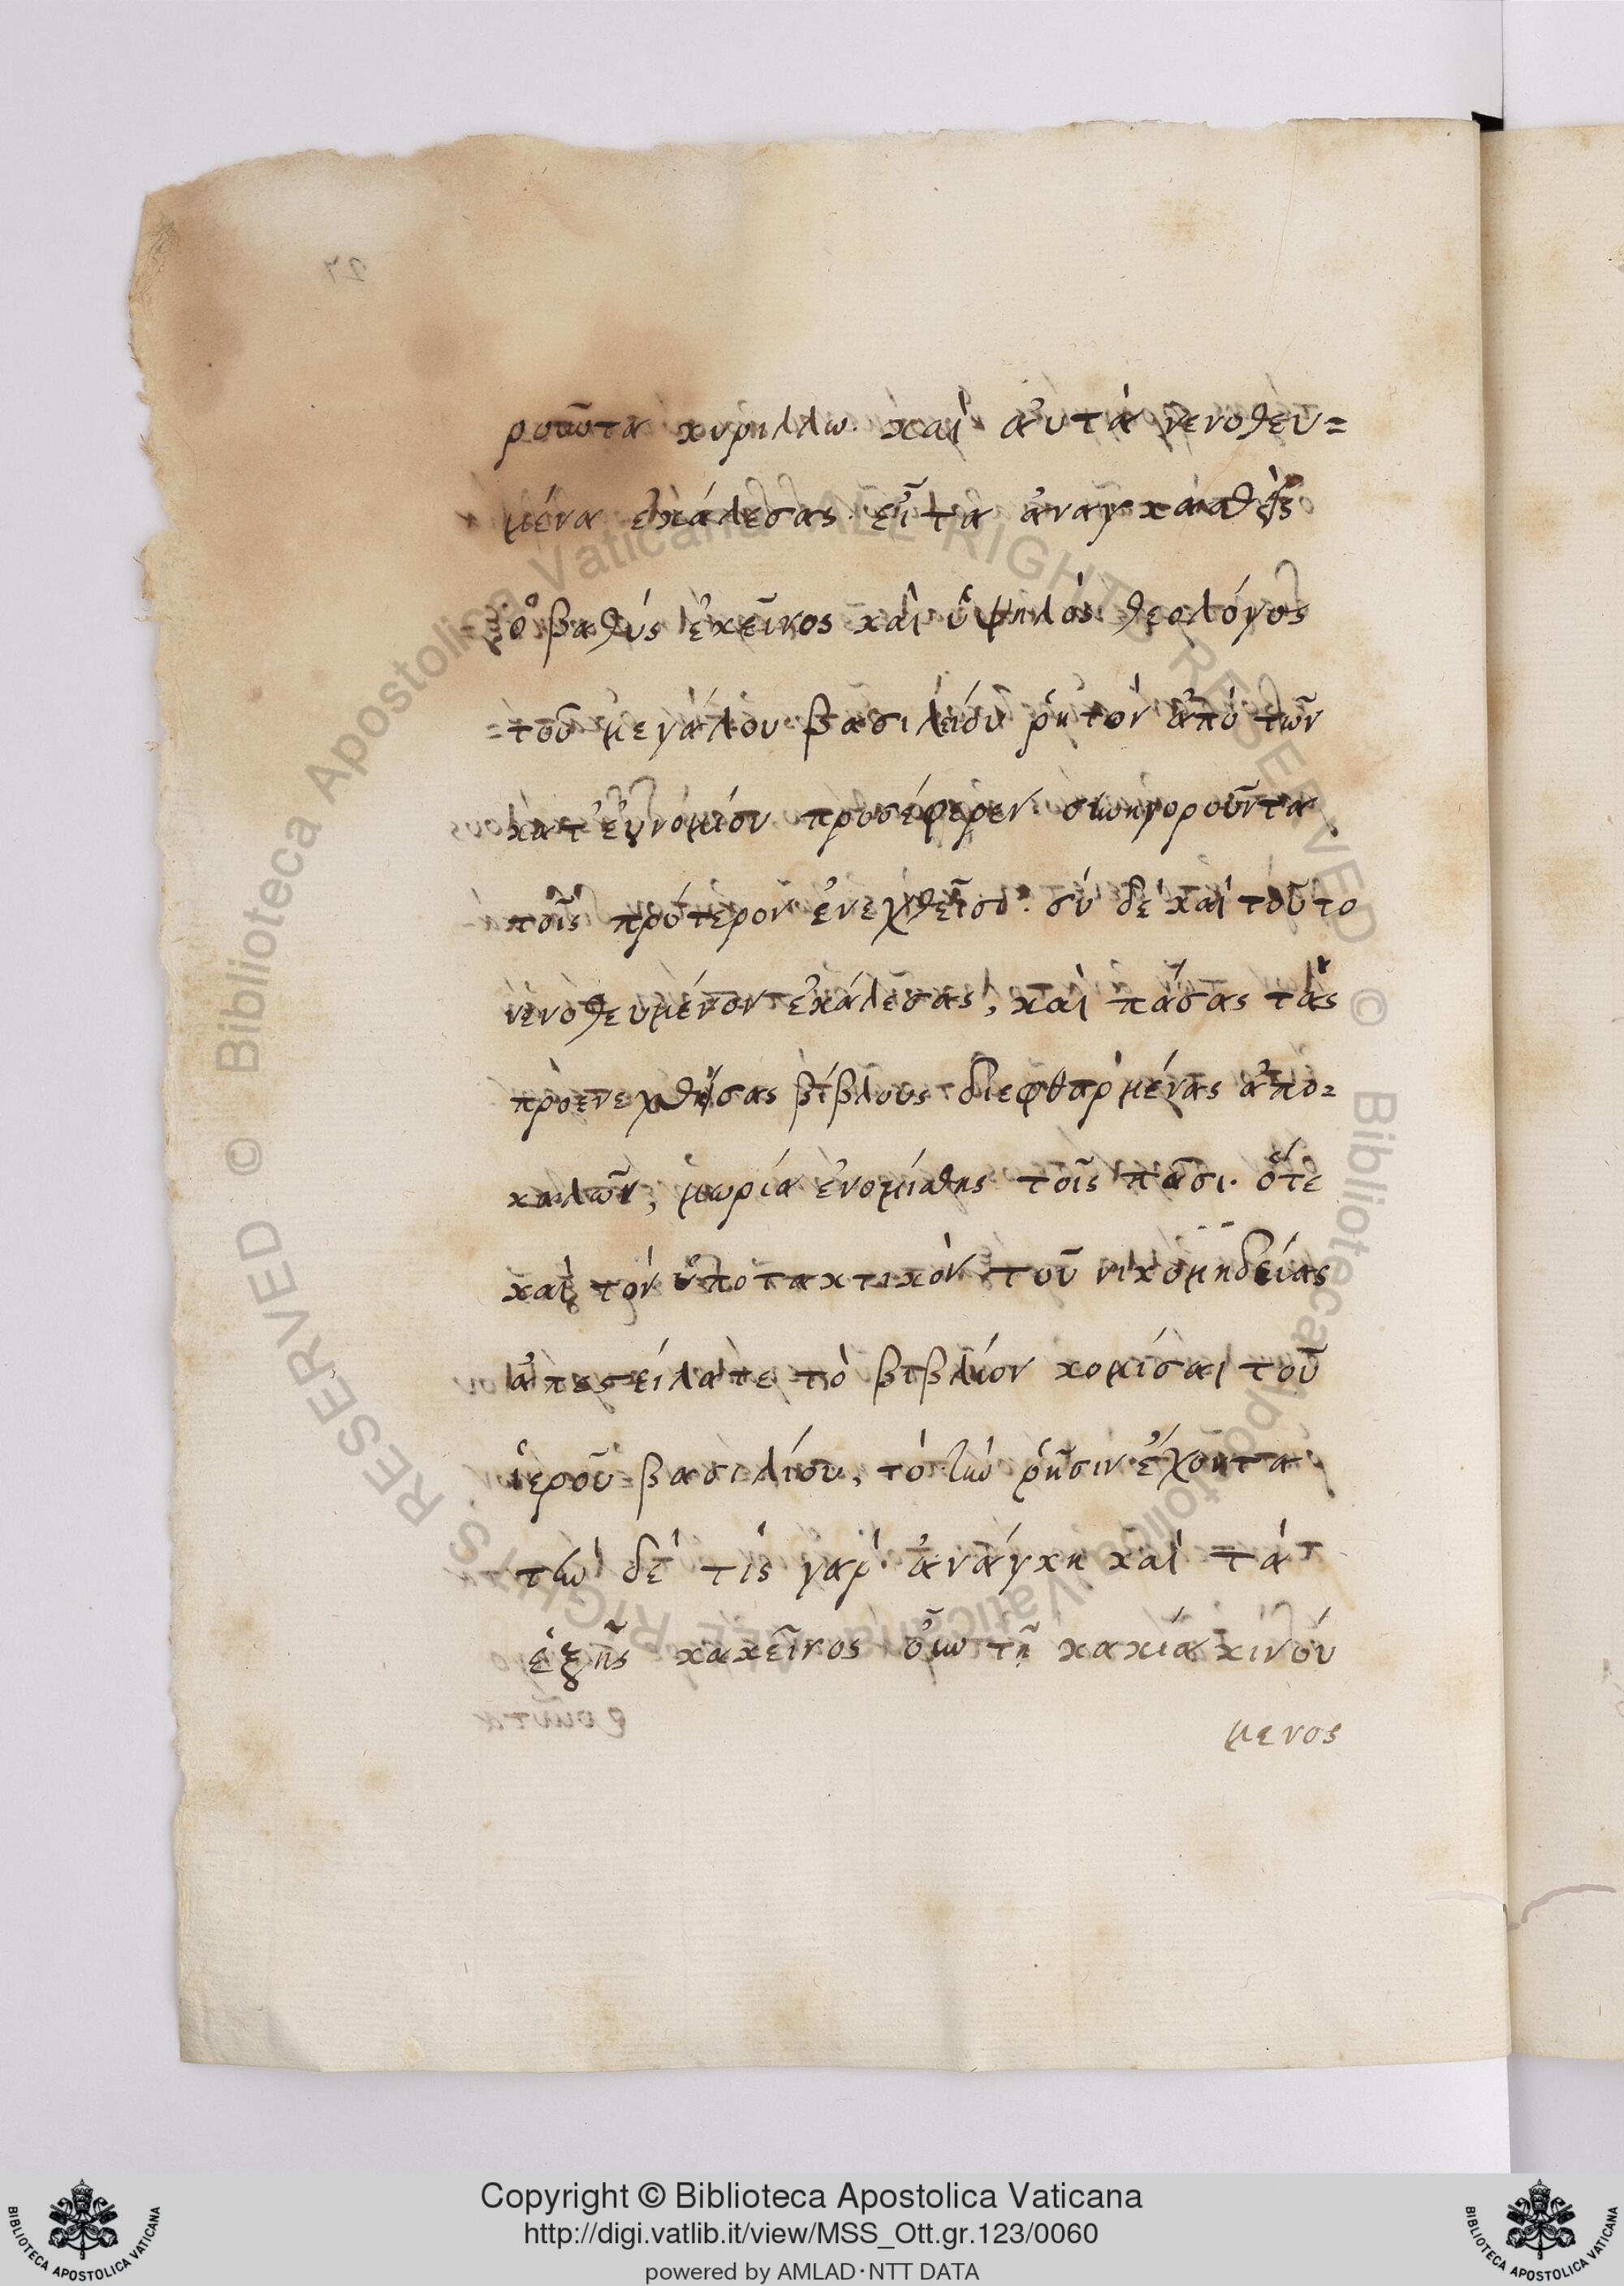 ροῦντα κυρίλλω· καὶ ἀυτὰ νενοθευ=
μένα ἐκάλεσας· εἶτα ἀναγκασθεὶς
ὁ βαθὺς ἐκεῖνος καὶ ὑψηλὸς θεολόγος
τοῦ μεγάλου βασιλείου ῥητὸν ἀπὸ τῶν
κατ' ἐυνομίου προσέφερεν· συνηγοροῦντα
τοῖς πρότερον ἐνεχθεῖσι· σὺ δὲ καὶ τοῦτο
νενοθευμένον ἐκάλεσας, καὶ πάσας τὰς
προενεχθείσας βίβλους διεφθαρμένας ἀπο=
καλῶν, μωρία ἐνομίσθης τοῖς πᾶσι· ὅτε
καὶ τὸν ὑποτακτικὸν τοῦ νικομηδείας
ἀπεστείλατε τὸ βιβλίον κομίσαι τοῦ
ἱεροῦ βασιλείου, τὸ τὴν ῥῆσιν ἔχοντα
τὴν δὲ τίς γὰρ ἀνάγκη καὶ τὰ
ἑξῆς κακεῖνος οὖν τῆ κακία κινού
μενος
Copyright © Biblioteca Apostolica Vaticana
http://digi.vatlib.it/view/MSS_Ott.gr.123/0060
powered by AMLAD·NTT DATA